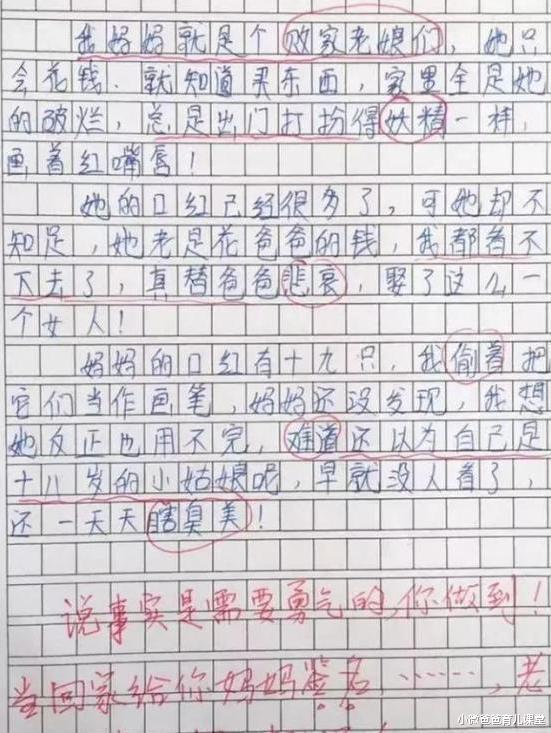 我妈妈就是个败家老娘们，她只
会花钱．就知道买东西，家里全是她
的破烂，总是出门打扮得妖精一样，
画着红嘴唇！
她的口红已经很多了，可她却不
知足，她老是花爸爸的钱，我都看不
下去了，真替爸爸悲哀，娶了这么一
个女人！
妈妈的口红有十九只，我偷着把
它们当作画笔，妈妈还没发现，我想
她反正也用不完，难道还以为自己是
十八岁的小姑娘呢，早就没人看了，
还一天天瞎臭美！
说事实是需要勇气的，你做到！
当回家给你妈妈签名，……，老
小微爸爸育儿课堂